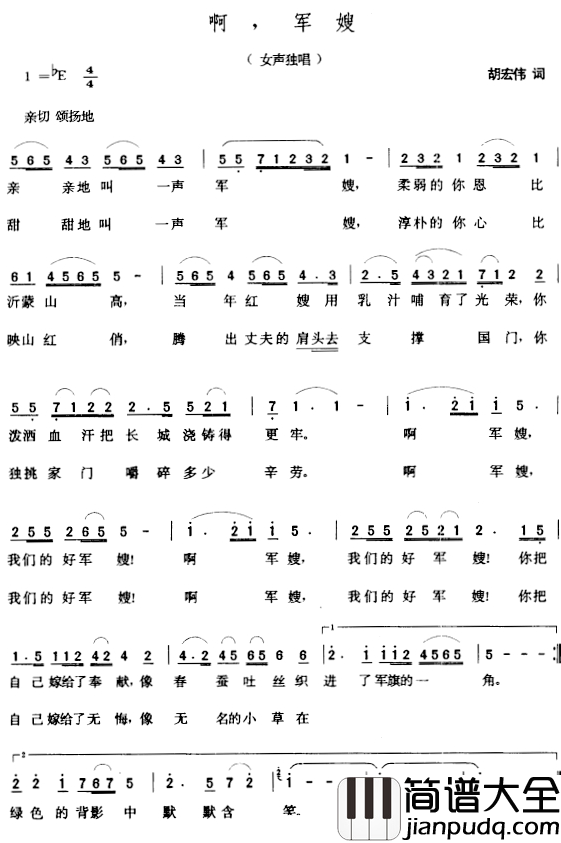 啊，军嫂
（女声独唱）
1=♭E 4/4
胡宏伟 词
亲切 颂扬地
5 6 5 4 3 5 6 5 4 3 | 5 5 7 1 2 3 2 1 - | 2 3 2 1 2 3 2 1 6 5 |
亲 亲地叫 一声 军 嫂， 柔弱的你恩 比
甜 甜地叫 一声 军 嫂， 淳朴的你心 比
6 1 4 5 6 5 5 - | 5 6 5 4 5 6 5 4 . 3 | 2 . 5 4 3 2 1 7 1 2 2 |
沂蒙山 高， 当 年红 嫂用 乳汁哺育了光荣，你
映山红 俏， 腾 出丈夫的肩头去 支 撑 国门，你
5 5 7 1 2 2 2 . 5 5 2 1 | 7 1 . 1 - | 1 . 2 1 1 5 . |
泼洒血汗把长城浇铸得 更牢。 啊 军嫂，
独挑家门 嚼碎多少 辛劳。 啊 军嫂，
2 5 5 2 6 5 5 - | 1 . 2 1 1 5 . | 2 5 5 2 5 2 1 2 . 1 5 |
我们的好军嫂！ 啊 军嫂， 我们的好军嫂！你把
我们的好军嫂！ 啊 军嫂， 我们的好军嫂！你把
1 . 5 1 1 1 2 4 2 4 2 | 4 . 2 4 5 6 5 6 6 | 1 2 . 1 1 1 2 4 5 6 5 5 - :|
自己嫁给了奉献，像 春蚕吐丝织进了军旗的一角。
自己嫁给了无悔，像 无名的小草在
2
2 2 1 7 6 7 2 | 2 . 5 7 2 | 1 -
绿色的背影中 默默含 笑。
简谱大全
jianpudq.com